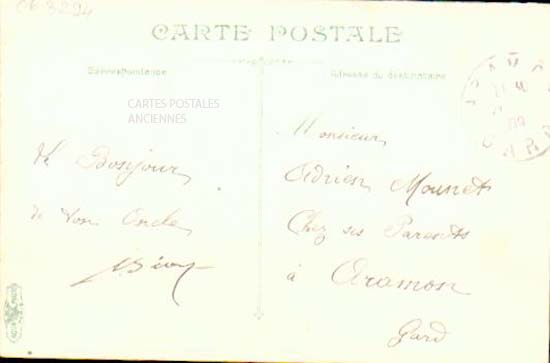 CARTE POSTALE
Correspondance
Adresse du destinataire
CARTES POSTALES
ANCIENNES
Bonjour
de ton Oncle
Monsieur
Adrien Mounet
Chez ses Parents
à Aramon
Gard